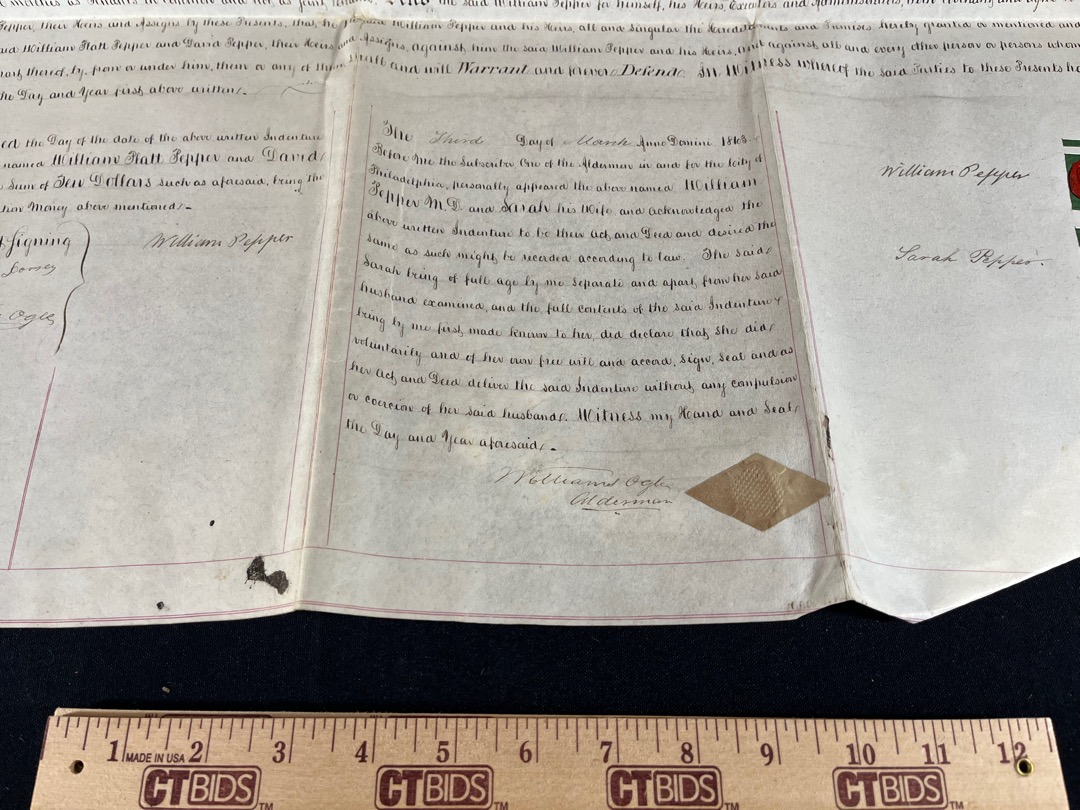 the said William Pepper for himself, his Heirs, Executors and Administrators,
Pepper, their Heirs and Assigns by these Presents, that he the said William Pepper and his Heirs, all and singular the Hereditaments and Premises, hereby granted or mentioned and
William Platt Pepper and David Pepper, their Heirs and Assigns, against him the said William Pepper and his Heirs, and against all and every other person or persons whom
thereof, by, from or under him, them or any of them Shall and will Warrant and forever Defend. In Witness whereof the said Parties to these Presents ha
he Day and Year first above written.
ed the Day of the date of the above written Indenture
named William Platt Pepper and David
Sum of Ten Dollars such as aforesaid, being the
tion Money above mentioned.
Signing
Dorsey
Ogle
William Pepper
The Third Day of March Anno Domini 1863.
Before me the Subscriber One of the Aldermen in and for the City of
Philadelphia, personally appeared the above named William
Pepper M.D. and Sarah his Wife and acknowledged the
above written Indenture to be their Act and Deed and desired the
same as such might be recorded according to law. The said
Sarah being of full age by me separate and apart from her said
husband examined, and the full contents of the said Indenture
being by me first made known to her, did declare that she did
voluntarily and of her own free will and accord, sign, seal and as
her Act and Deed deliver the said Indenture without any compulsion
or coercion of her said husband. Witness my Hand and Seal
the Day and Year aforesaid.
William Ogle
Alderman
William Pepper
Sarah Pepper.
1 MADE IN USA 2 3 4 5 6 7 8 9 10 11 12
CTBIDS TM CTBIDS TM CTBIDS TM CTBIDS TM